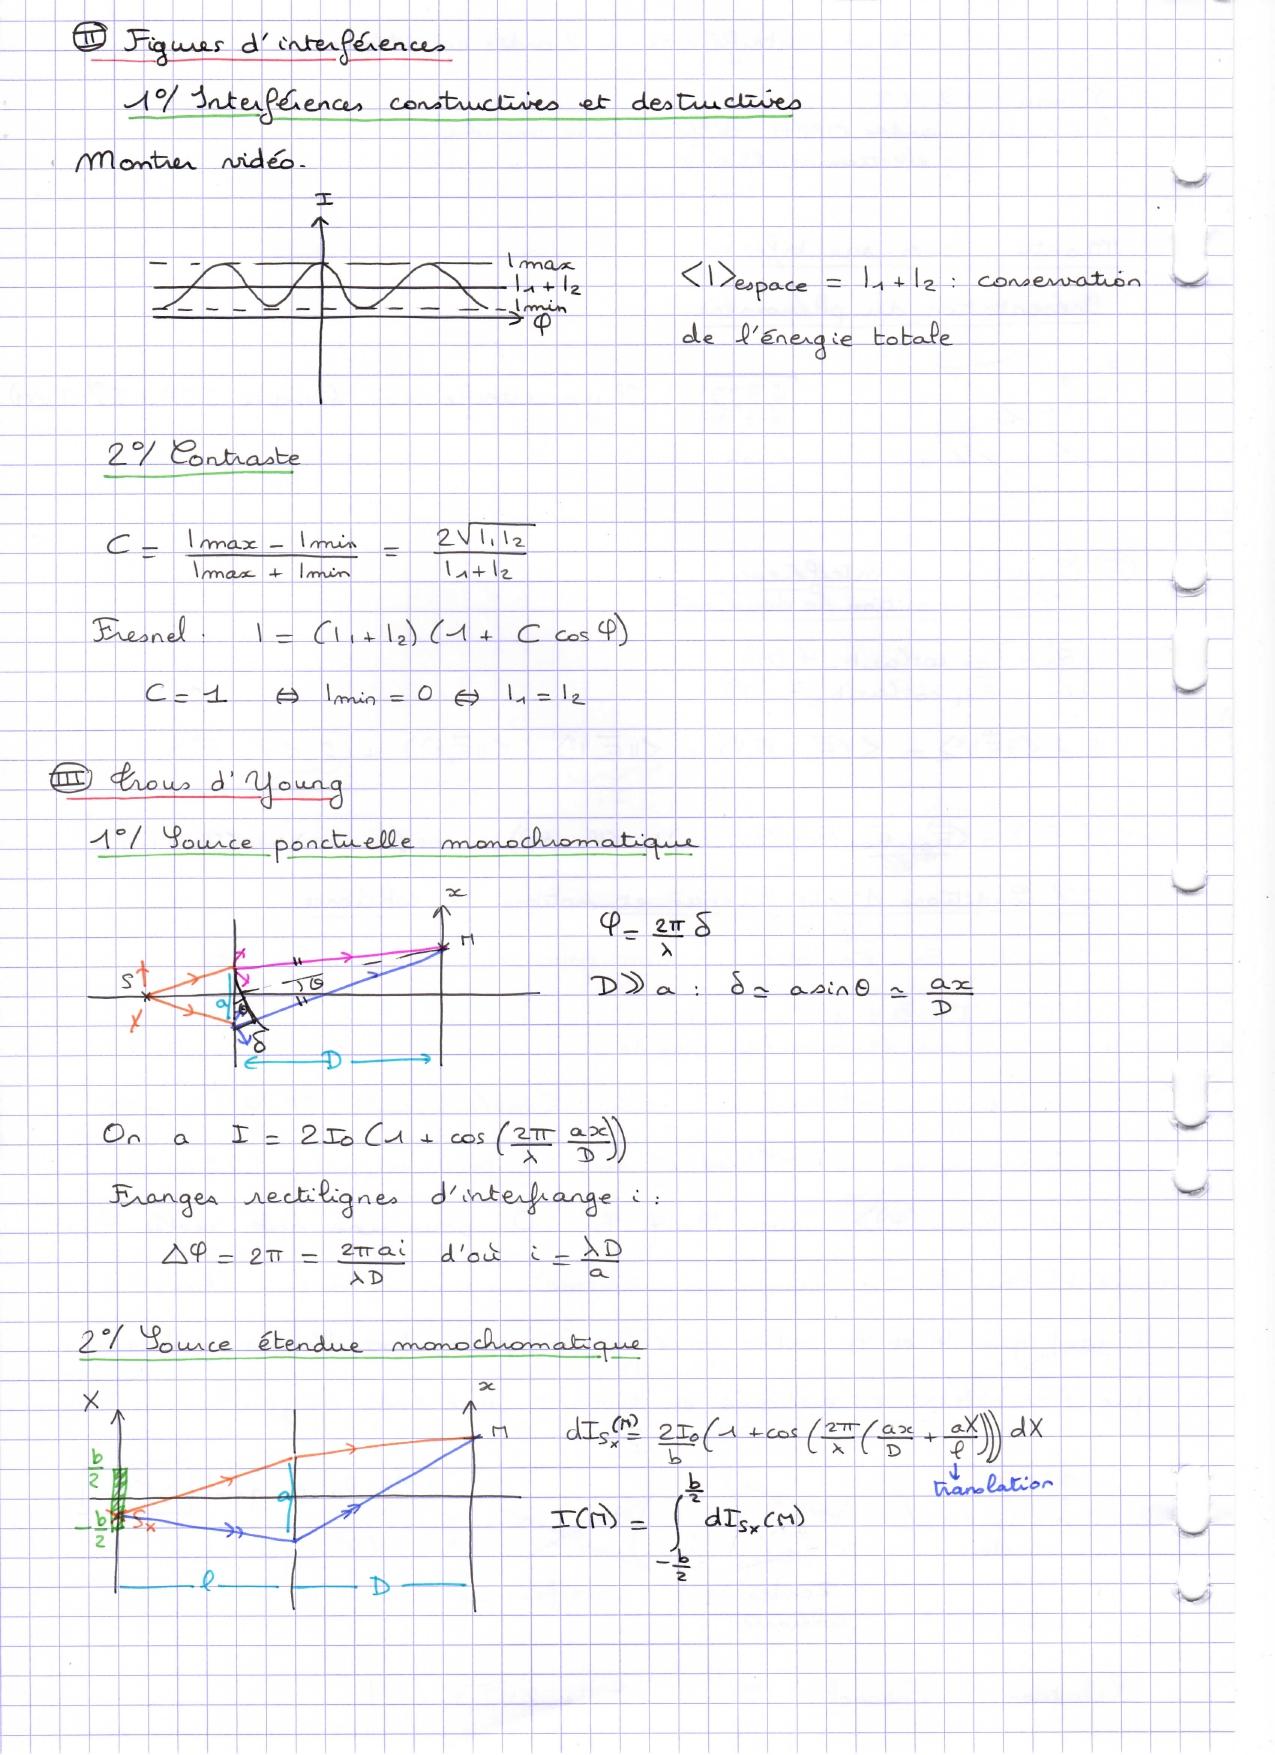 II Figures d'interférences
1°/ Interférences constructives et destructives
Montrer vidéo.
I
Imax
I1 + I2
Imin
φ
<I>espace = I1 + I2 : conservation
de l'énergie totale
2°/ Contraste
C = (Imax - Imin)/(Imax + Imin) = 2√(I1 I2)/(I1 + I2)
Fresnel : I = (I1 + I2)(1 + C cos φ)
C = 1 ⇔ Imin = 0 ⇔ I1 = I2
III trous d'Young
1°/ Source ponctuelle monochromatique
x
M
S
θ
a
δ
D
φ = 2π/λ δ
D ≫ a : δ ≃ a sin θ ≃ ax/D
On a I = 2I0 (1 + cos(2π/λ ax/D))
Franges rectilignes d'interfrange i :
Δφ = 2π = 2πai/λD d'où i = λD/a
2°/ Source étendue monochromatique
X
x
M
b/2
-b/2
Sx
a
l
D
dISx(M) = 2I0/b (1 + cos(2π/λ (ax/D + aX/l))) dX
↓
translation
I(M) = ∫_{-b/2}^{b/2} dISx(M)